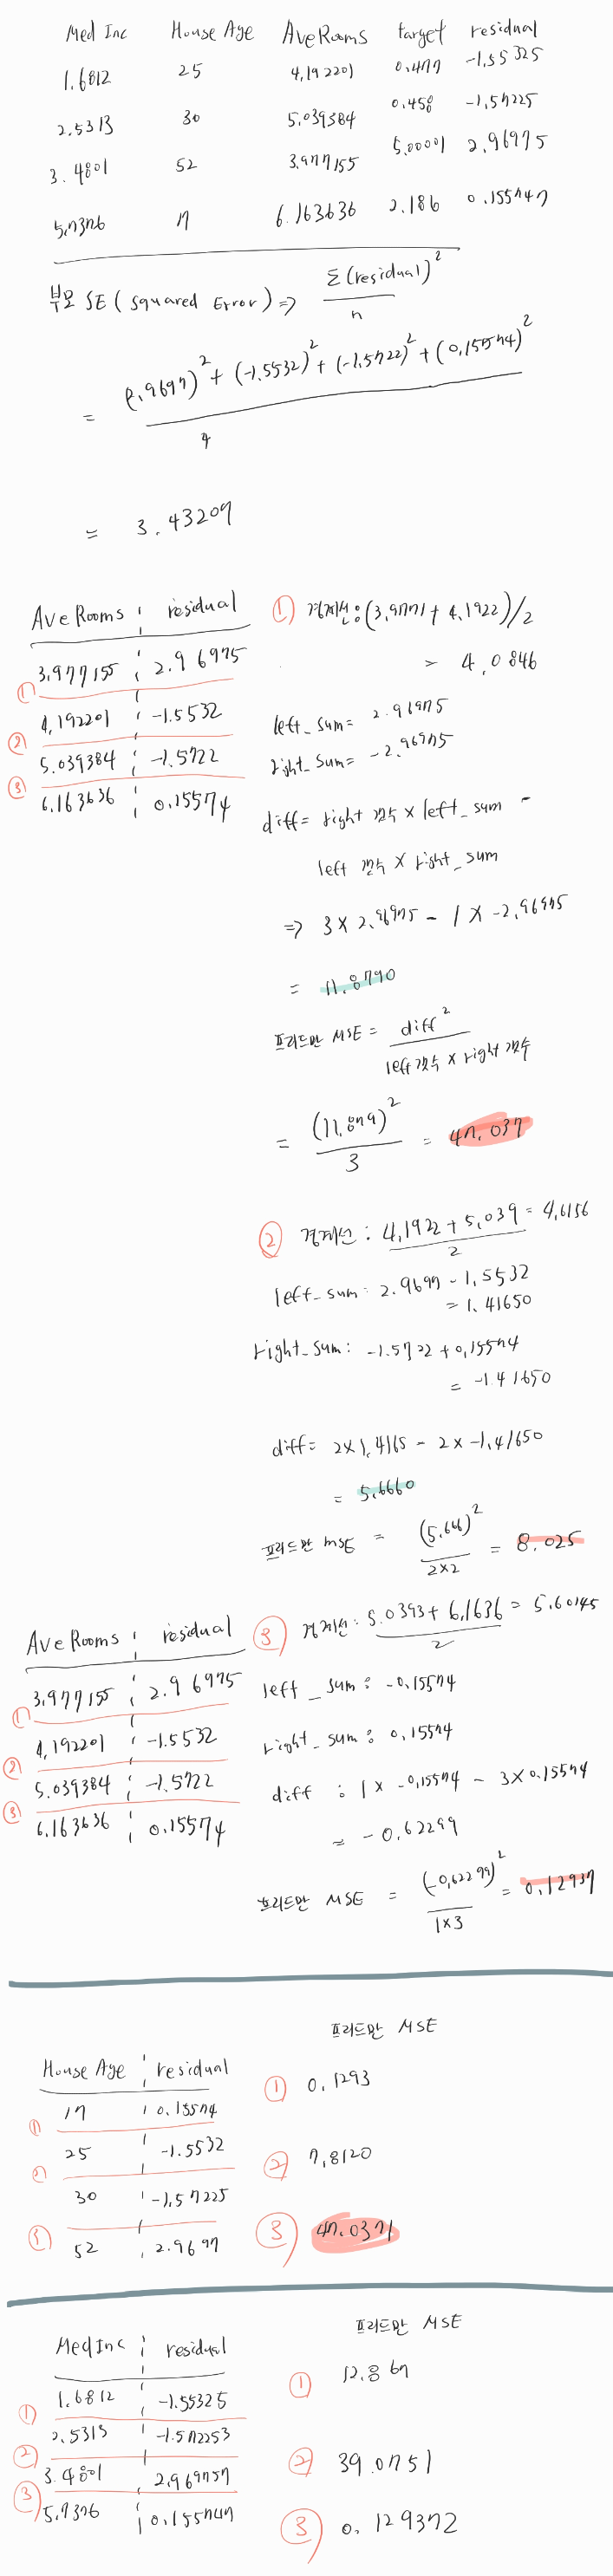 Med Inc House Age AveRooms target residual
1.6812 25 4.192201 0.477 -1.55325
2.5313 30 5.039384 0.458 -1.57225
3.4801 52 3.977155 5.00001 2.96975
5.7376 17 6.163636 2.186 0.155747
부모 SE ( Squared Error) => Σ(residual)² / n
= (2.9697)² + (-1.5532)² + (-1.5722)² + (0.15574)² / 4
= 3.43207
AveRooms residual
3.977155 2.96975
①
4.192201 -1.5532
②
5.039384 -1.5722
③
6.163636 0.15574
① 경계선: (3.9771 + 4.1922)/2
= 4.0846
left_sum= 2.96975
right_sum= -2.96975
diff= right 갯수 × left_sum -
left 갯수 × right_sum
=> 3 × 2.96975 - 1 × -2.96975
= 11.8790
프리드만 MSE = diff² / left 갯수 × right 갯수
= (11.879)² / 3 = 47.037
② 경계선 : 4.1922 + 5.039 / 2 = 4.6156
left_sum: 2.9697 - 1.5532
= 1.41650
right_sum: -1.5722 + 0.15574
= -1.41650
diff= 2×1.4165 - 2 × -1.41650
= 5.6660
프리드만 MSE = (5.666)² / 2×2 = 8.025
AveRooms residual
3.977155 2.96975
①
4.192201 -1.5532
②
5.039384 -1.5722
③
6.163636 0.15574
③ 경계선: 5.0393 + 6.1636 / 2 = 5.60145
left _ sum : -0.15574
right_sum : 0.15574
diff : 1 × -0.15574 - 3 × 0.15574
= -0.62299
프리드만 MSE = (-0.62299)² / 1×3 = 0.12937
프리드만 MSE
House Age residual
17 0.15574
①
25 -1.5532
②
30 -1.57225
③
52 2.9697
① 0.1293
② 7.8120
③ 47.0371
프리드만 MSE
Med Inc residual
1.6812 -1.55325
①
2.5313 -1.572253
②
3.4801 2.969757
③
5.7376 0.155747
① 12.867
② 39.0751
③ 0.129372